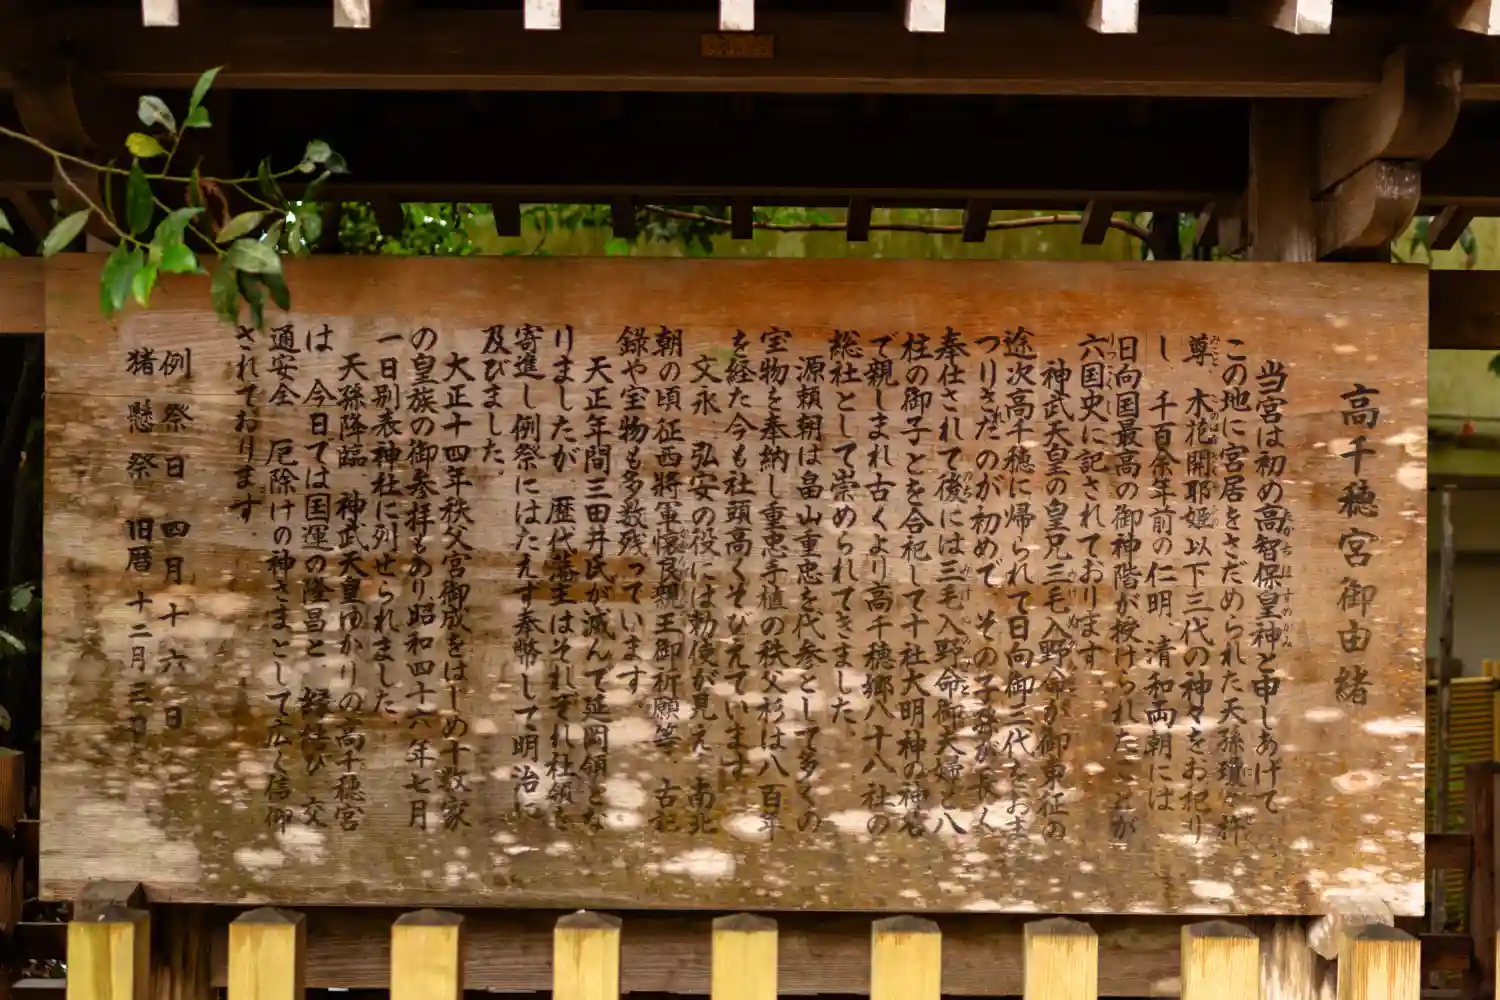 高千穂宮御由緒
当宮は初め高智保皇神と申しあげて
この地に宮居をさだめられた天孫瓊々杵
尊 木花開耶姫以下三代の神々をお祀り
し 千百余年前の仁明、清和両朝には
日向国最高の御神階が授けられたことが
六国史に記されております
神武天皇の皇兄三毛入野命が御東征の
途次高千穂に帰られて日向御三代をおま
つりさたのが初めで、その子孫が長く
奉仕されて後には三毛入野命御夫婦と八
柱の御子とを合祀して十社大明神の神名
で親しまれ古くより高千穂郷八十八社の
総社として崇められてきました。
源頼朝は畠山重忠を代参として多くの
宝物を奉納し重忠手植の秩父杉は八百年
を経た今も社頭高くそびえています
文永 弘安の役には勅使が見え、南北
朝の頃征西將軍懐良親王御祈願等、古記
録や宝物も多数残っています。
天正年間三田井氏が滅んで延岡領とな
りましたが、歴代藩主はそれぞれ社領を
寄進し例祭にはたえず奉幣して明治に
及びました。
大正十四年秩父宮御成をはじめ十数家
の皇族の御参拝もあり昭和四十六年七月
一日別表神社に列せられました、
天孫降臨、神武天皇ゆかりの高千穂宮
は 今日では国運の隆昌と、縁結び 交
通安全 厄除けの神さまとして広く信仰
されております
例祭日 四月十六日
猪懸祭 旧暦 十二月三日